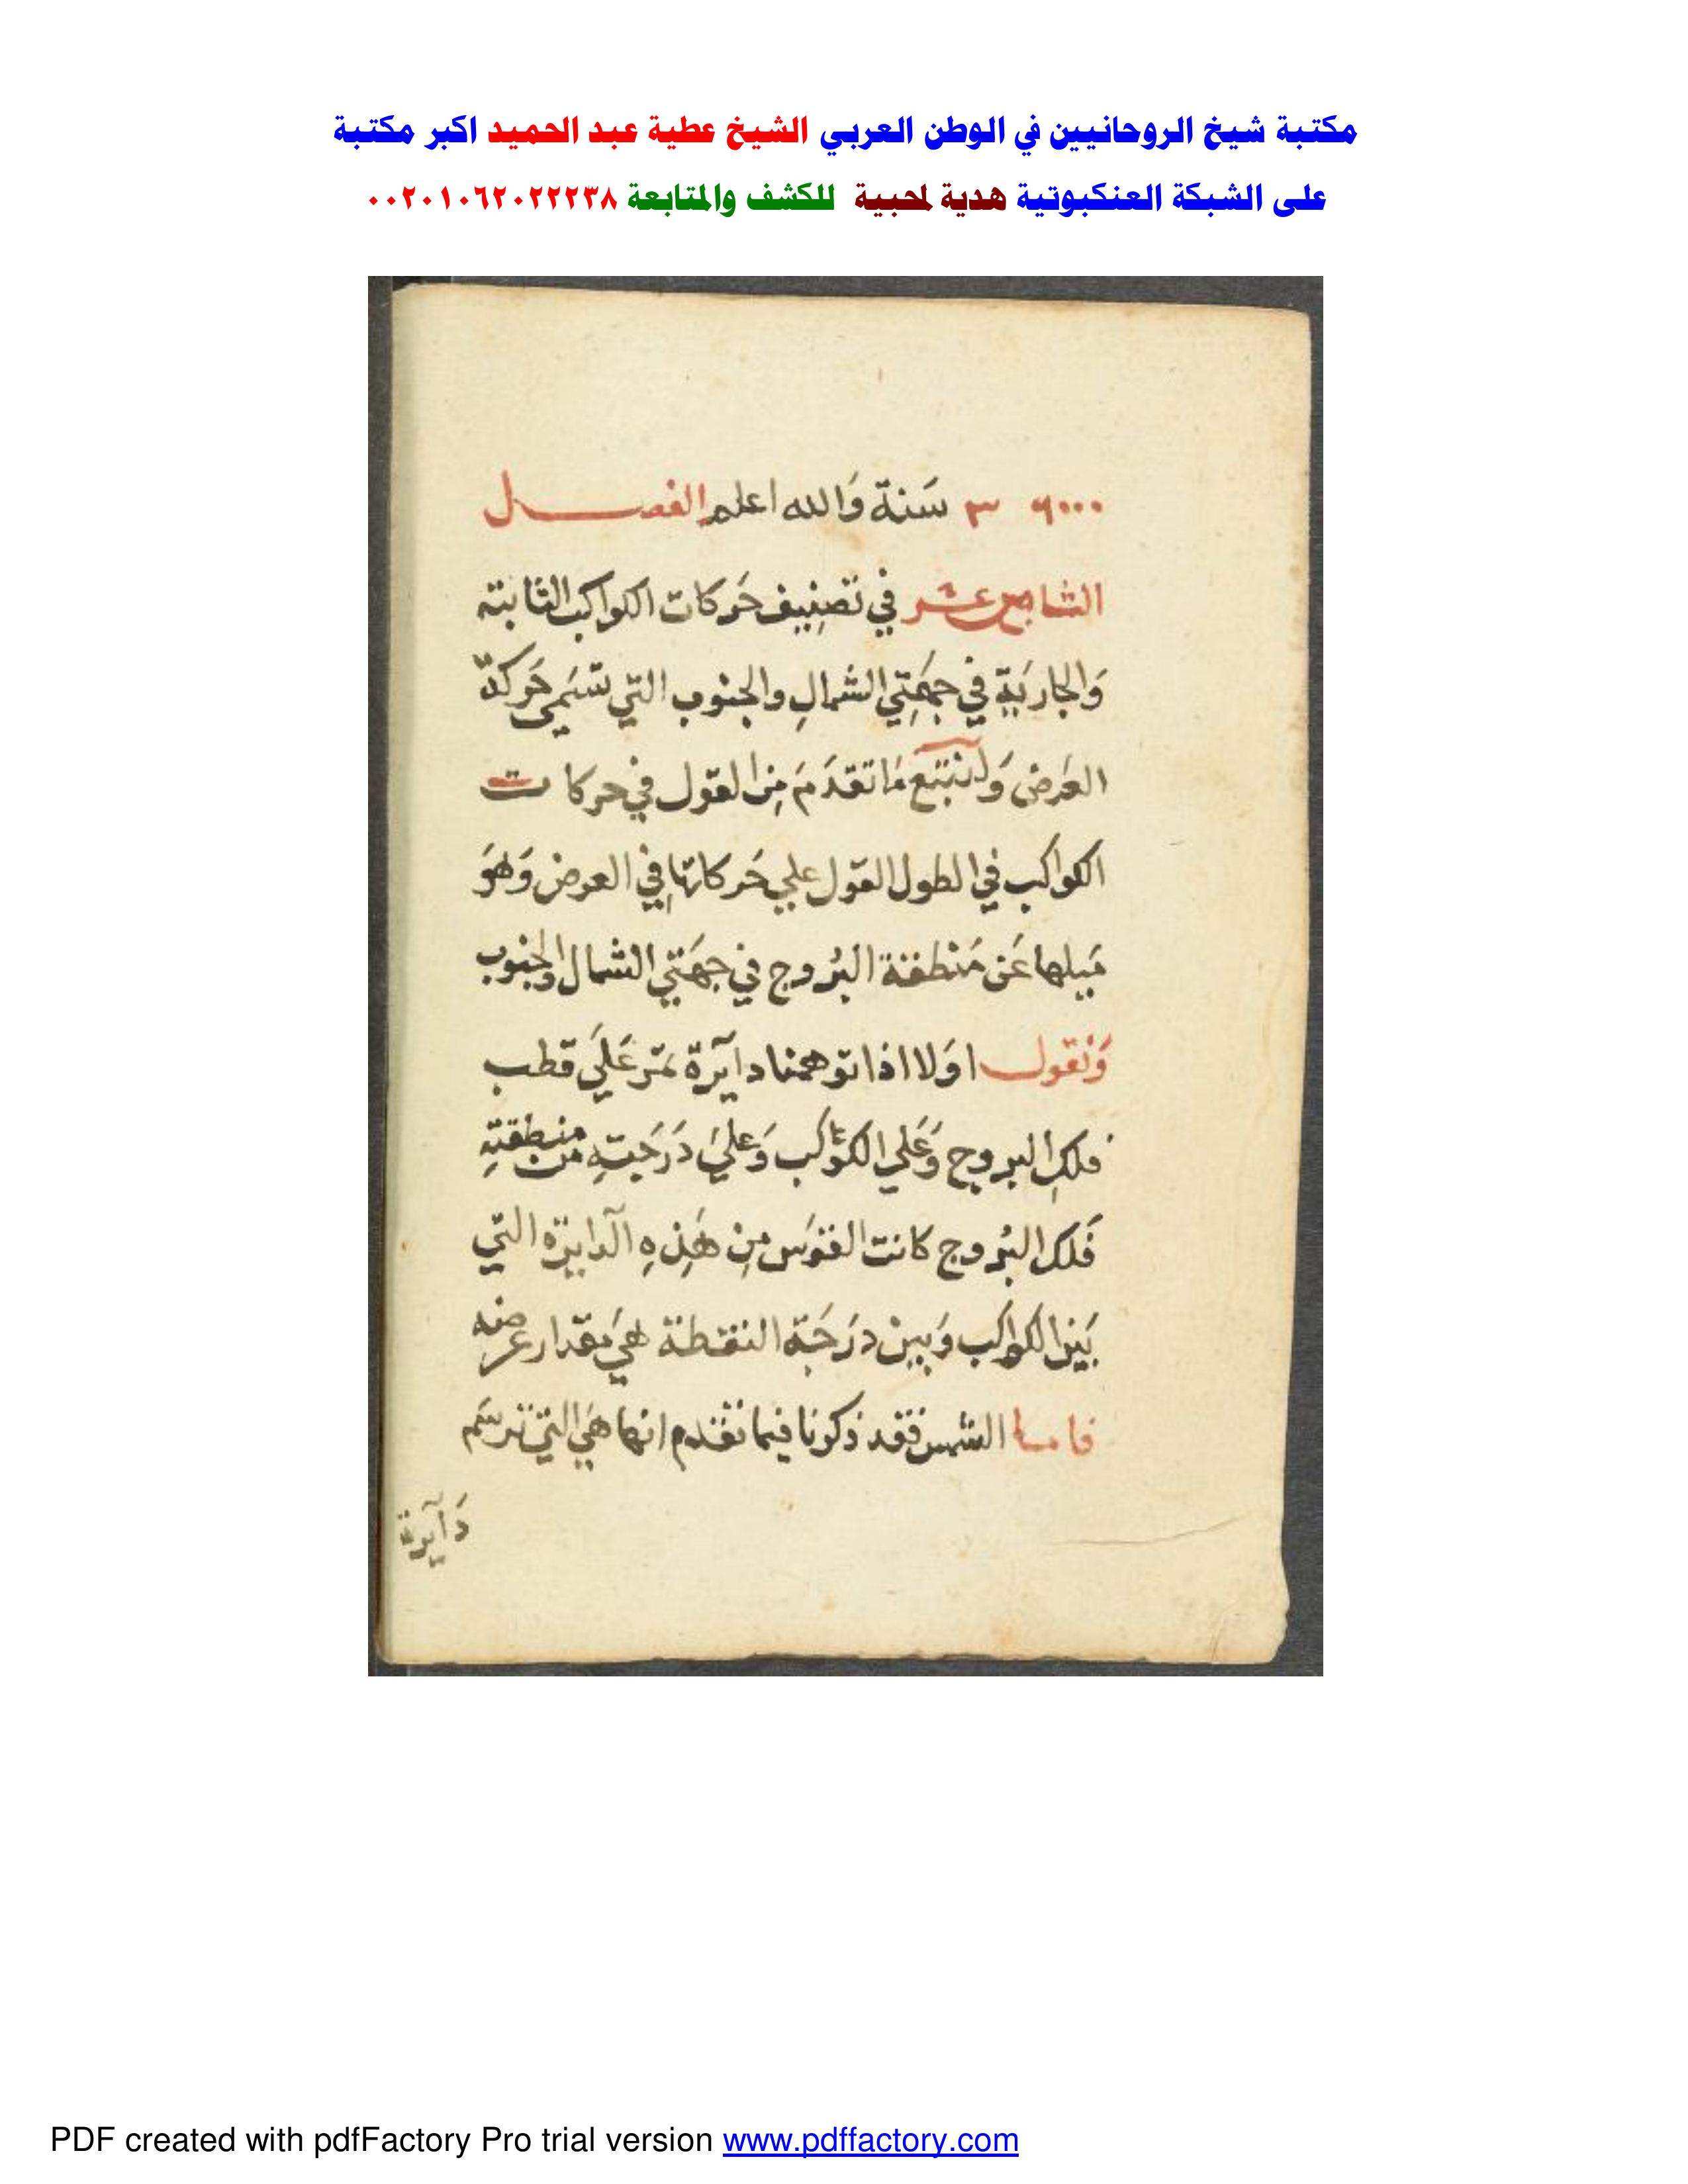 مكتبة شيخ الروحانيين في الوطن العربي الشيخ عطية عبد الحميد اكبر مكتبة
على الشبكة العنكبوتية هدية لمحبية للكشف والمتابعة ٠٠٢٠١٠٦٢٠٢٢٢٣٨
سَنة وَالله اعلم الفصل
عشر في تصِنيف حَركات الكواكب الثابته
وَالجاريَة في جهَتِي الشمالِ والجنوب التي تسَمي حَركة
العَرض وَلنتبَع مَا تقدَمَ مِن القول في حركات
الكواكب في الطول القول علي حَركاتهَا في العرض وَهوَ
مَيلها عَن مَنْطقة البُروج في جهَتي الشمال والجنوب
وَنقول اوَلا اذا توهمنا دآيرة تمّر عَلَي قطب
فلكِ البروج وَعَلي الكوَاكب وَعَليَ دَرَجتِهِ من منطقتِهِ
فَلك البُروج كانت القوَس مِن هَذِهِ الدايرَه التي
بَين الكواكب وَبين درَجَة النقطة هيَ مقدار عرضه
فاما الشمس فقد ذكرنا فيما تقدم انها هيَ التي ترسَم
دَآيرة
PDF created with pdfFactory Pro trial version www.pdffactory.com